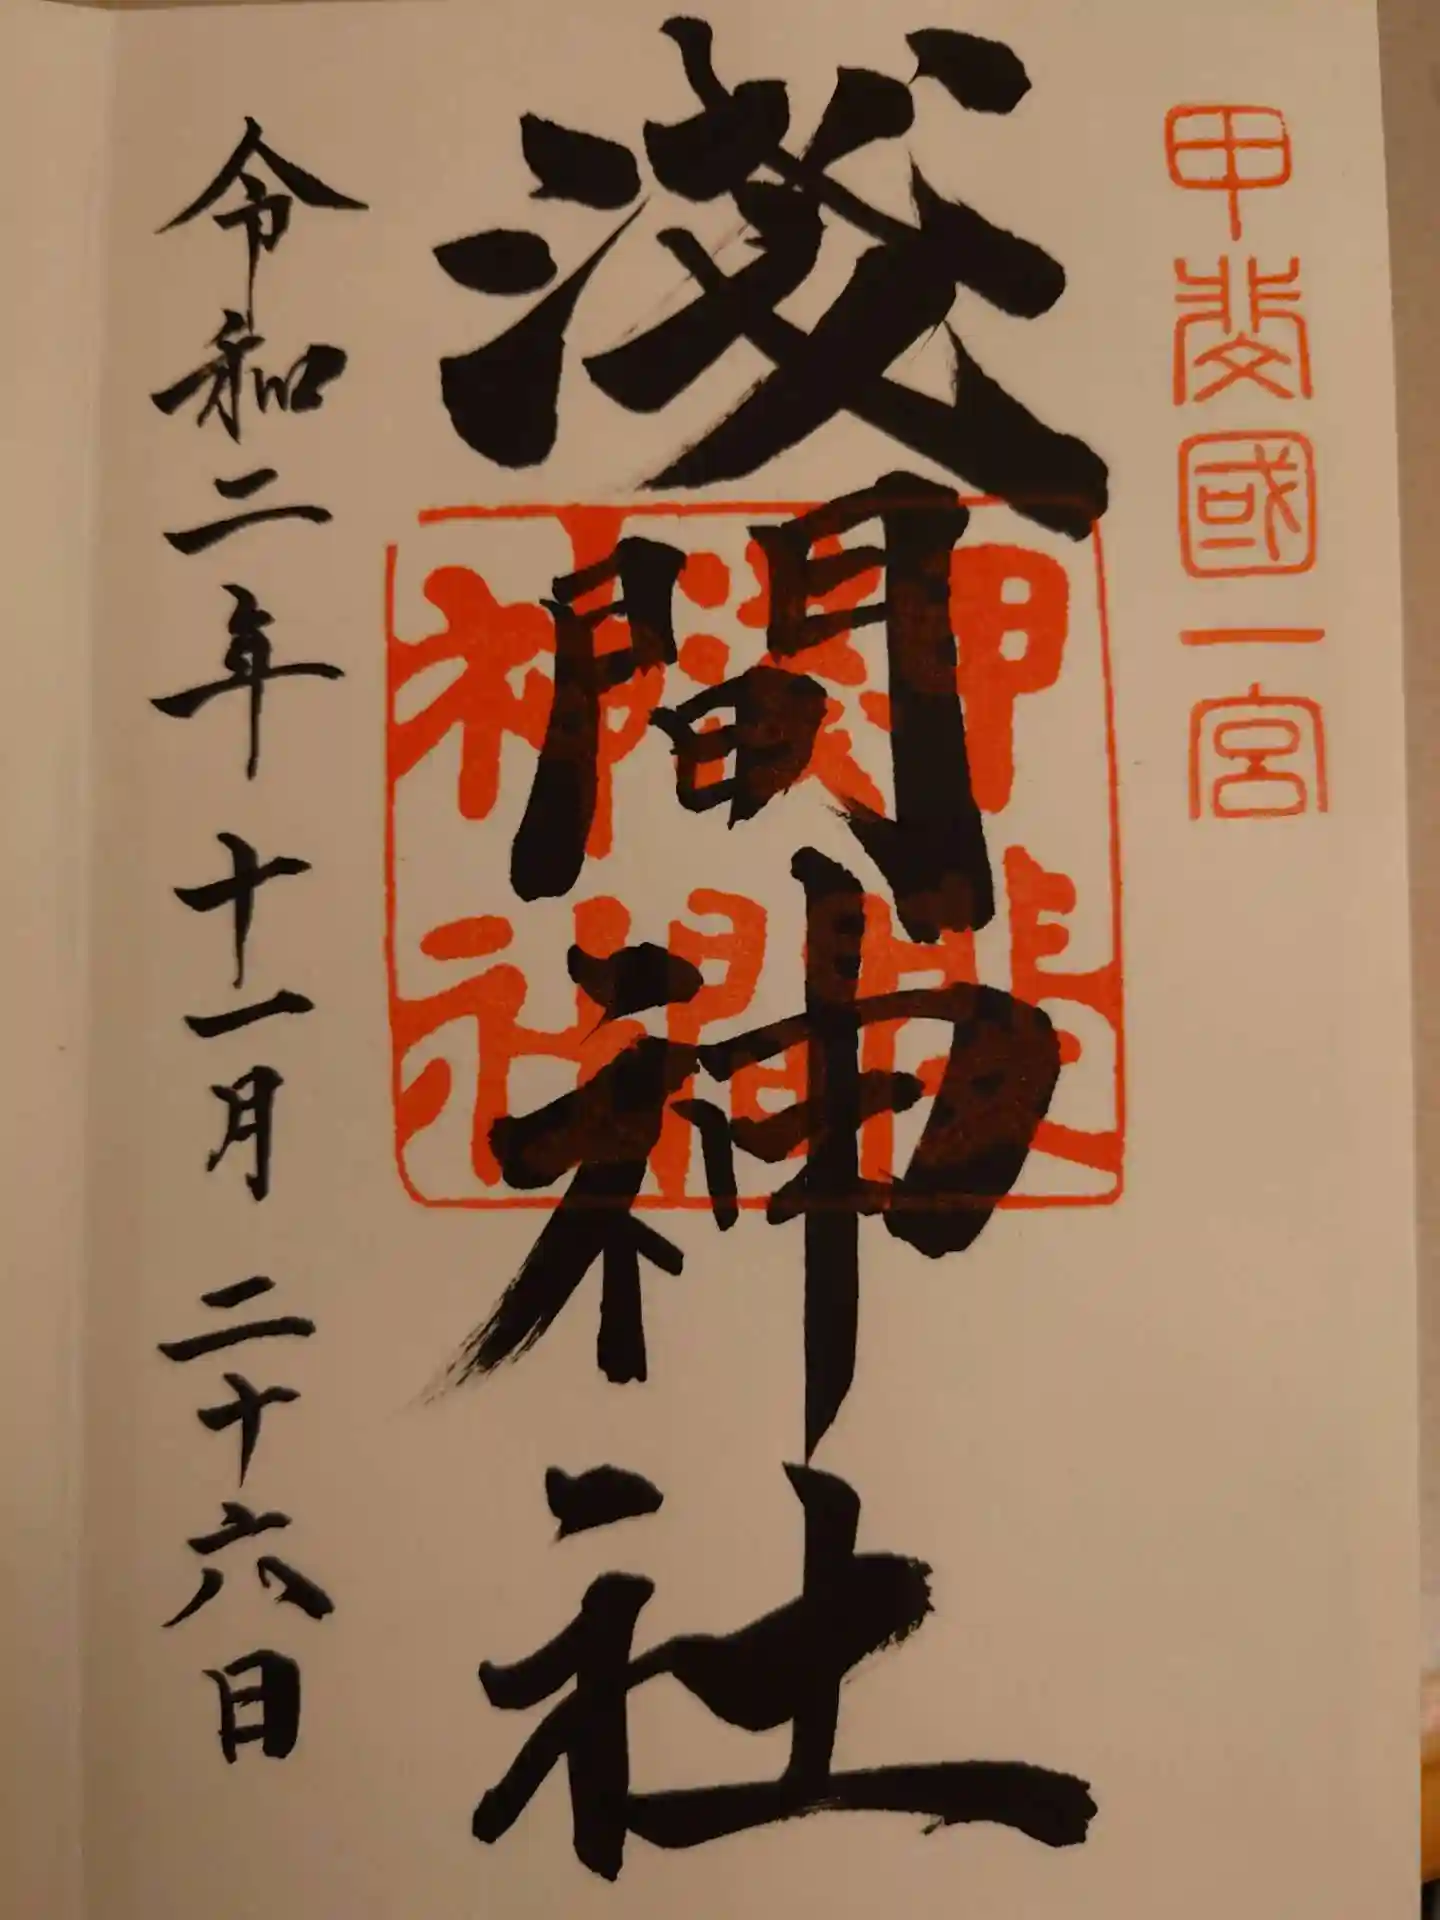 甲斐國一宮
淺間神社
甲斐
淺間
神社
令和二年十一月二十六日